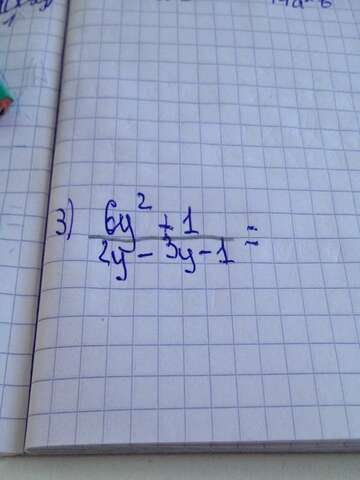 3) 6y² + 1
2y - 3y - 1 =